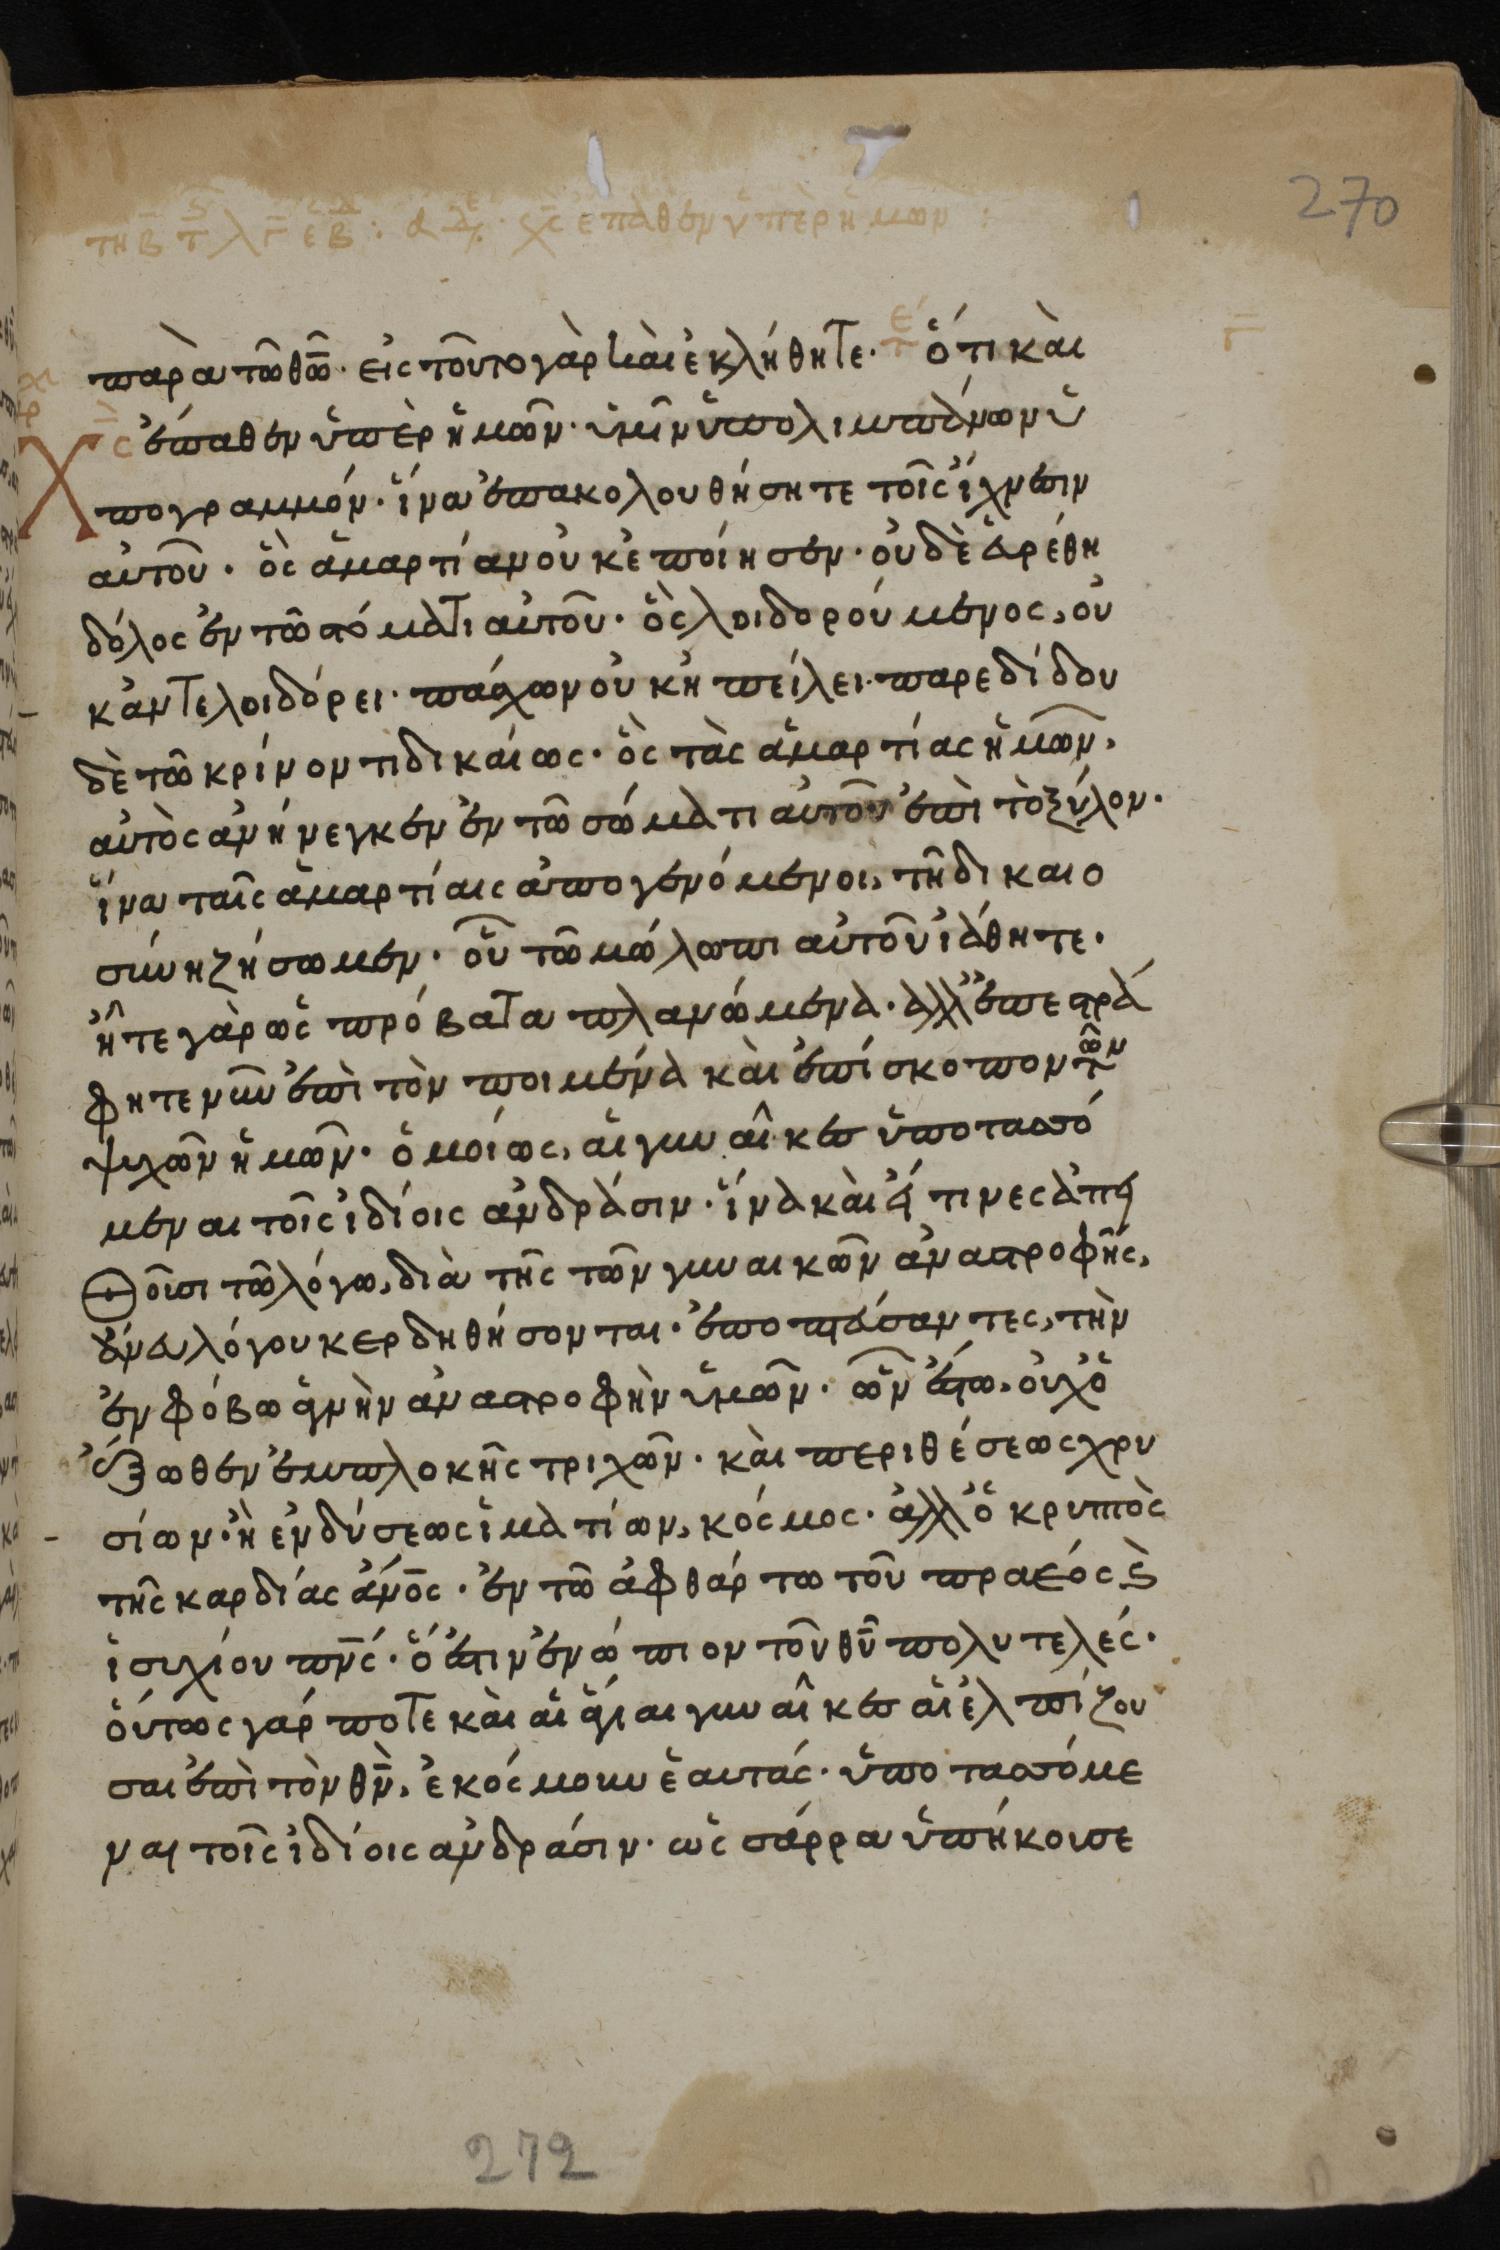 270
παρὰ τῶ θ̅ω̅· εἰς τοῦτο γὰρ καὶ ἐκλήθητε· ὅτι καὶ
χ̅ς̅ ἔπαθεν ὑπὲρ ἡμῶν· ὑμῖν ὑπολιμπάνων ὑ
πογραμμόν· ἵνα ἐπακολουθήσητε τοῖς ἴχνεσιν
αὐτοῦ· ὃς ἁμαρτίαν οὐκ ἐποίησεν· οὐδὲ εὑρέθη
δόλος ἐν τῶ στόματι αὐτοῦ· ὃς λοιδορούμενος, οὐ
κ ἀντελοιδόρει· πάσχων οὐκ ἠπείλει· παρεδίδου
δὲ τῶ κρίνοντι δικαίως· ὃς τὰς ἁμαρτίας ἡμῶν,
αὐτὸς ἀνήνεγκεν ἐν τῶ σώματι αὐτοῦ ἐπὶ τὸ ξύλον·
ἵνα ταῖς ἁμαρτίαις ἀπογενόμενοι, τῆ δικαιο
σύνη ζήσωμεν· οὗ τῶ μώλωπι αὐτοῦ ἰάθητε·
ἦτε γὰρ ὡς πρόβατα πλανώμενα· ἀλλ' ἐπεστρά
φητε νῦν ἐπὶ τὸν ποιμένα καὶ ἐπίσκοπον τῶν
ψυχῶν ἡμῶν· ὁμοίως, αἱ γυναῖκες ὑποτασσό
μεναι τοῖς ἰδίοις ἀνδράσιν· ἵνα καὶ εἴ τινες ἀπει
θοῦσι τῶ λόγω, διὰ τῆς τῶν γυναικῶν ἀναστροφῆς,
ἄνευ λόγου κερδηθήσονται· ἐποπτεύσαντες, τὴν
ἐν φόβω ἁγνὴν ἀναστροφὴν ὑμῶν· ὧν ἔστω, οὐχ ὁ
ἔξωθεν ἐμπλοκῆς τριχῶν· καὶ περιθέσεως χρυ
σίων· ἢ ἐνδύσεως ἱματίων, κόσμος· ἀλλ' ὁ κρυπτὸς
τῆς καρδίας ἄν̅ο̅ς̅· ἐν τῶ ἀφθάρτω τοῦ πραέος ϗ
ἡσυχίου π̅ν̅ς̅· ὅ ἐστιν ἐνώπιον τοῦ θ̅υ̅ πολυτελές·
οὕτως γάρ ποτε καὶ αἱ ἅγιαι γυναῖκες αἱ ἐλπίζου
σαι ἐπὶ τὸν θ̅ν̅, ἐκόσμουν ἑαυτάς· ὑποτασσόμε
ναι τοῖς ἰδίοις ἀνδράσιν· ὡς σάρρα ὑπήκουσε
272